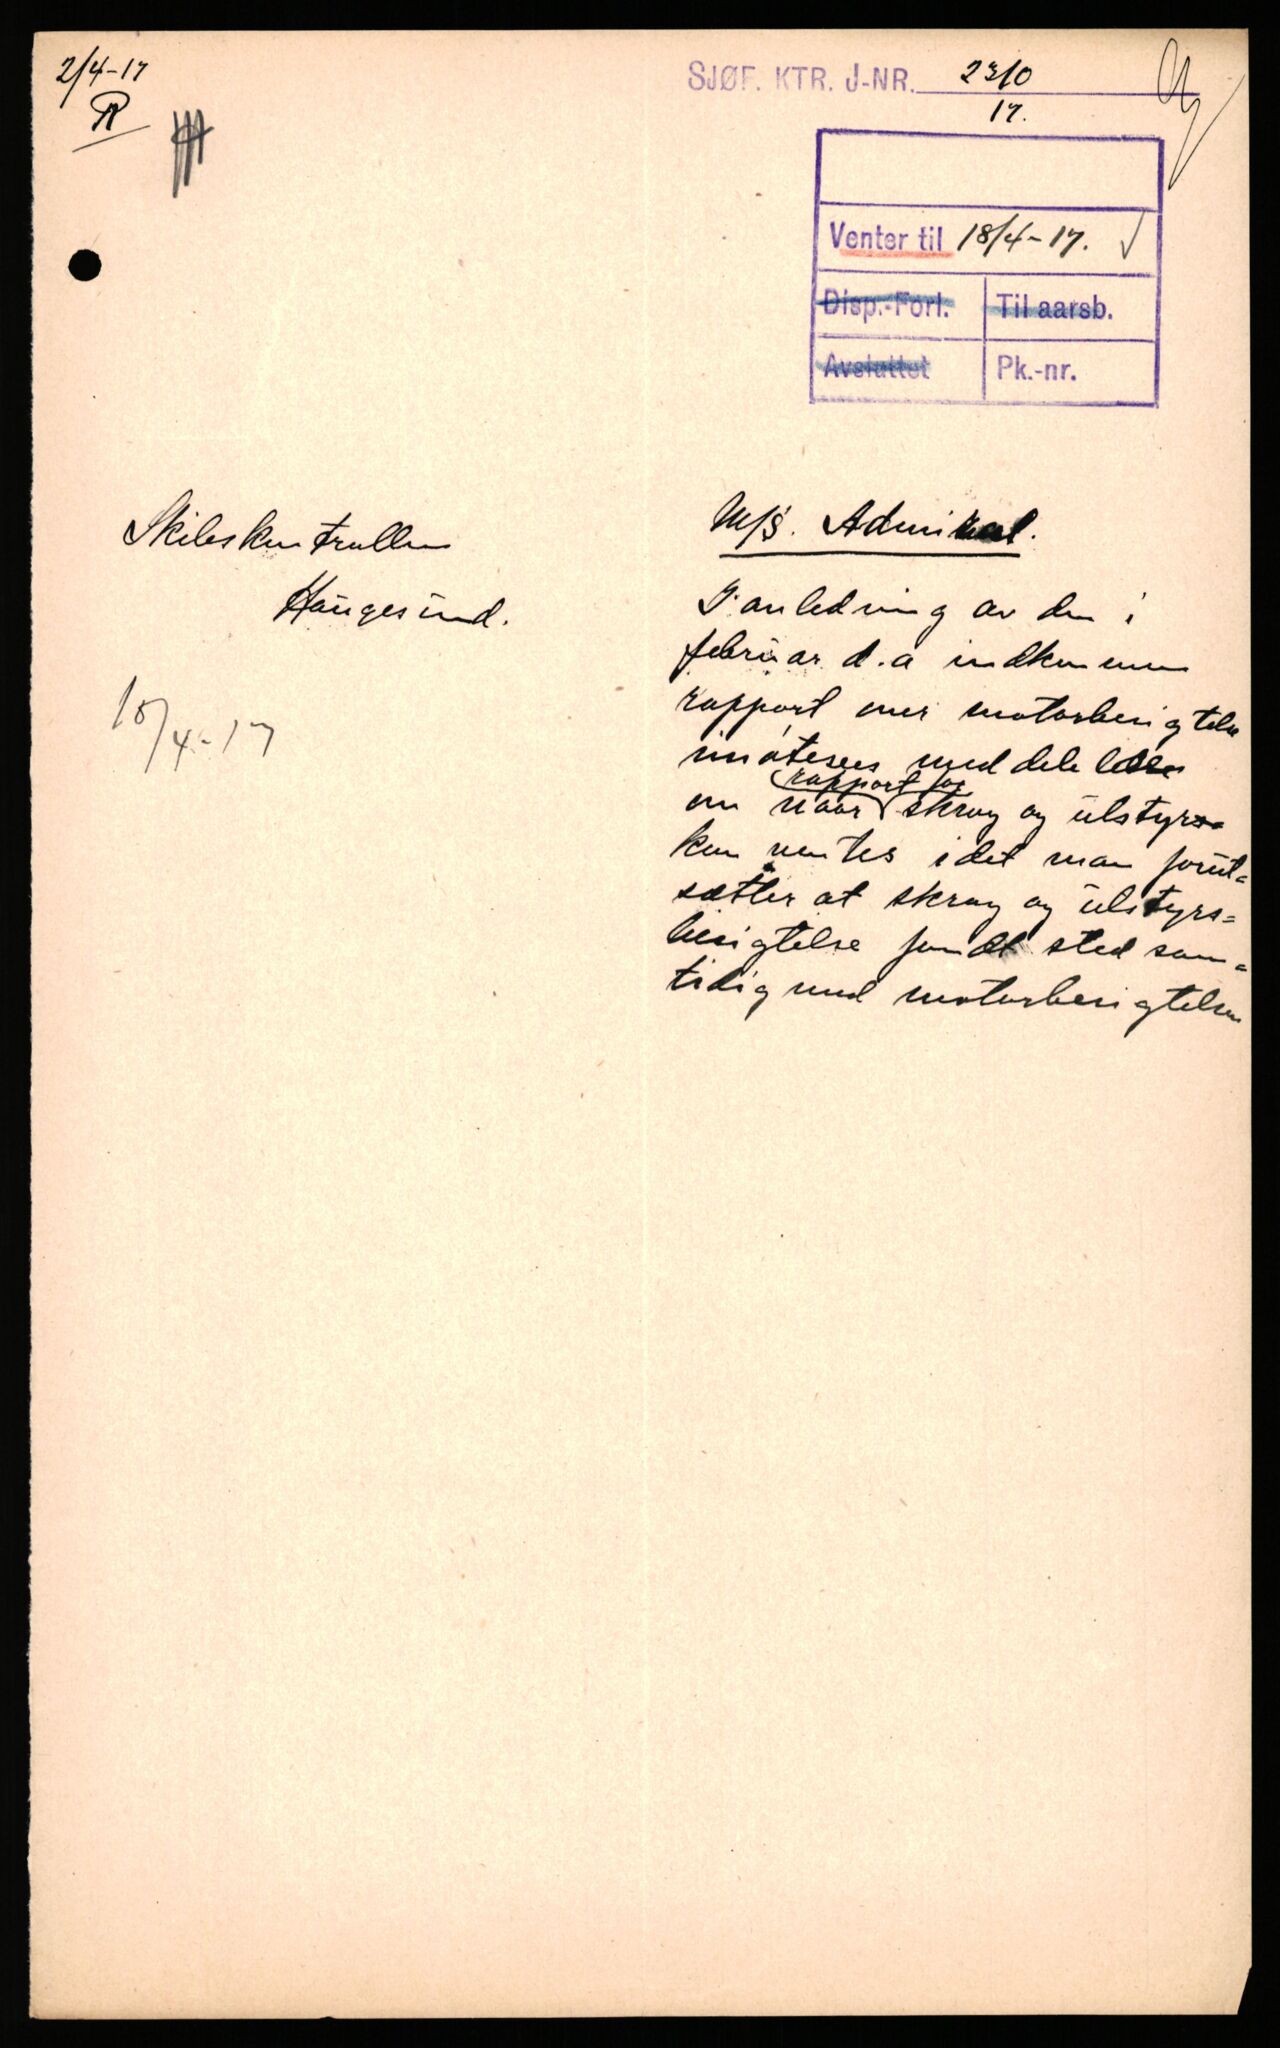 2/4-17
R
SJØF. KTR. J-NR. 2310
17.
Venter til 18/4-17.
Disp.-Forl. Til aarsb.
Avsluttet Pk.-nr.
Skibskontrollen
Haugesund.
10/4-17
M/S. Admiral.
I anledning av den i
februar d.a indkommne
rapport over motorbesigtelse
imøtesees meddelelse
rapport for
om naar skrog og utstyr
kan ventes idet man forut=
sætter at skrog og utstyrs=
besigtelse fandt sted sam=
tidig med motorbesigtelsen